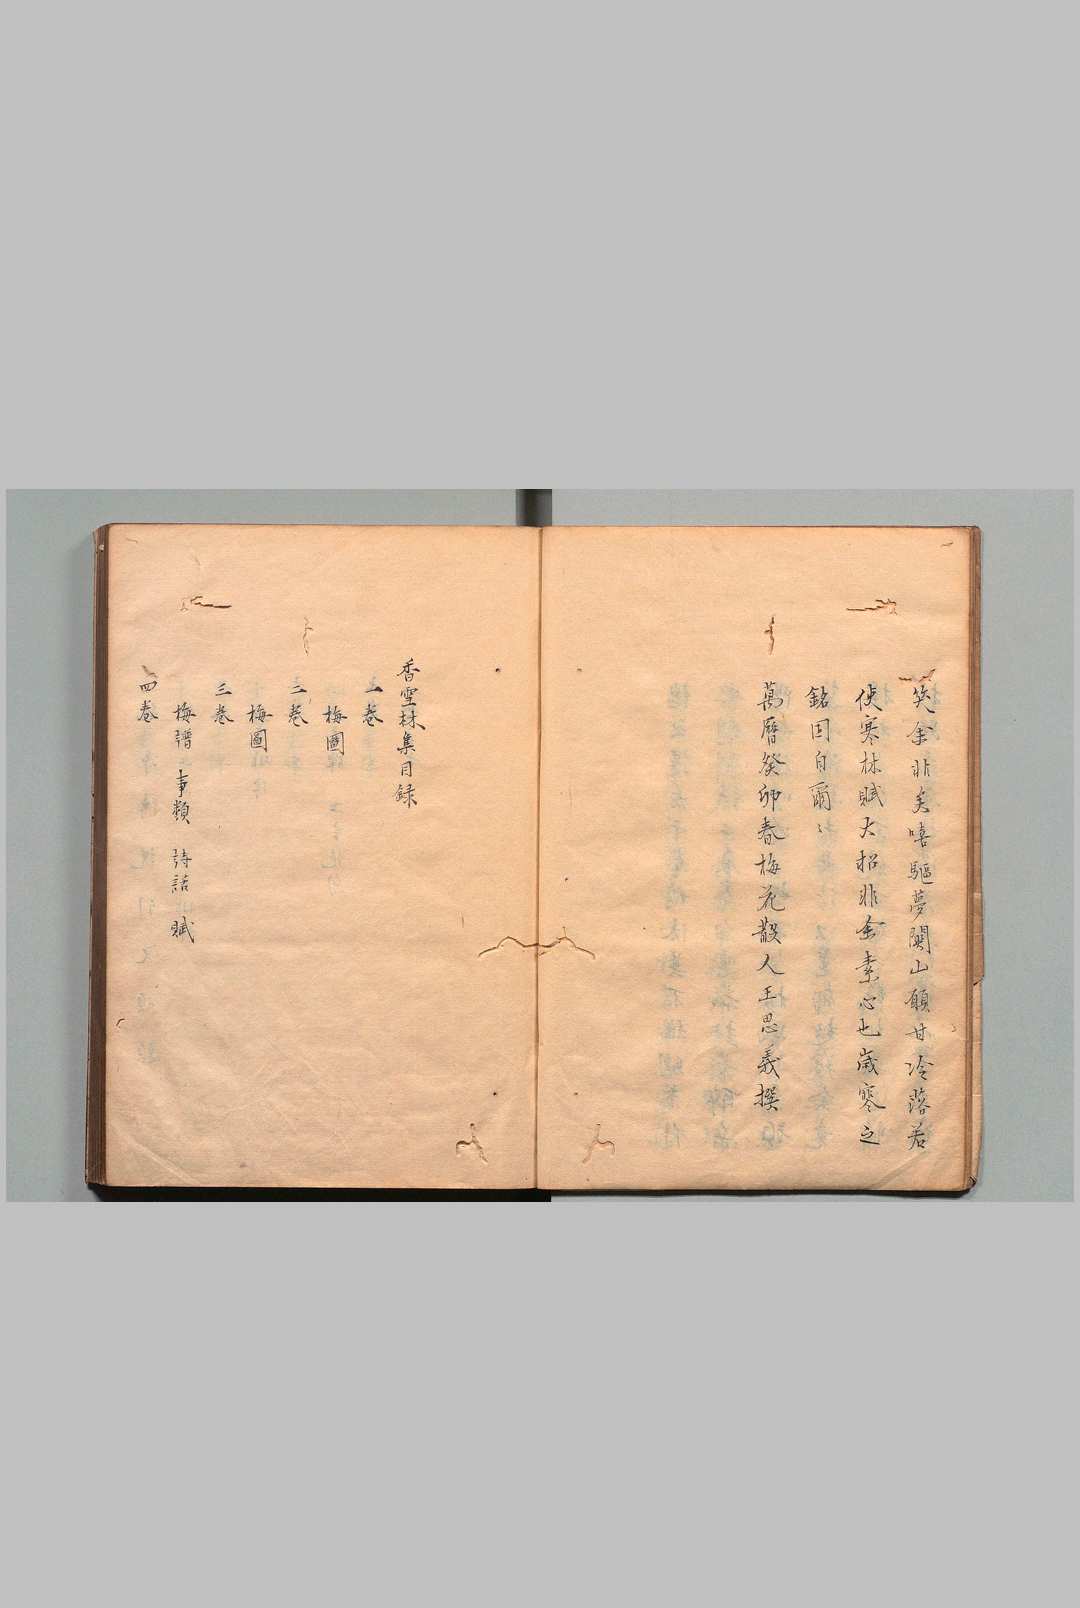 笑余非矣嘻驅夢闗山願甘冷落若
使寒林賦大招非余素心也歲寒之
銘因自爾〻
萬曆癸卯春梅花散人王思義撰
香雪林集目録
上巻
梅圖
二巻
梅圖
三巻
梅譜 事類 詩話 賦
四巻